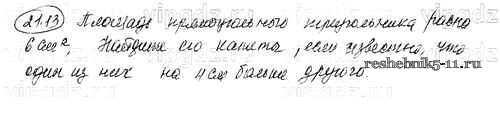 21.13 Площадь прямоугольного треугольника равна
6 см², Найдите его катеты, если известно, что
один из них на 4 см больше другого.
reshebnik5-11.ru